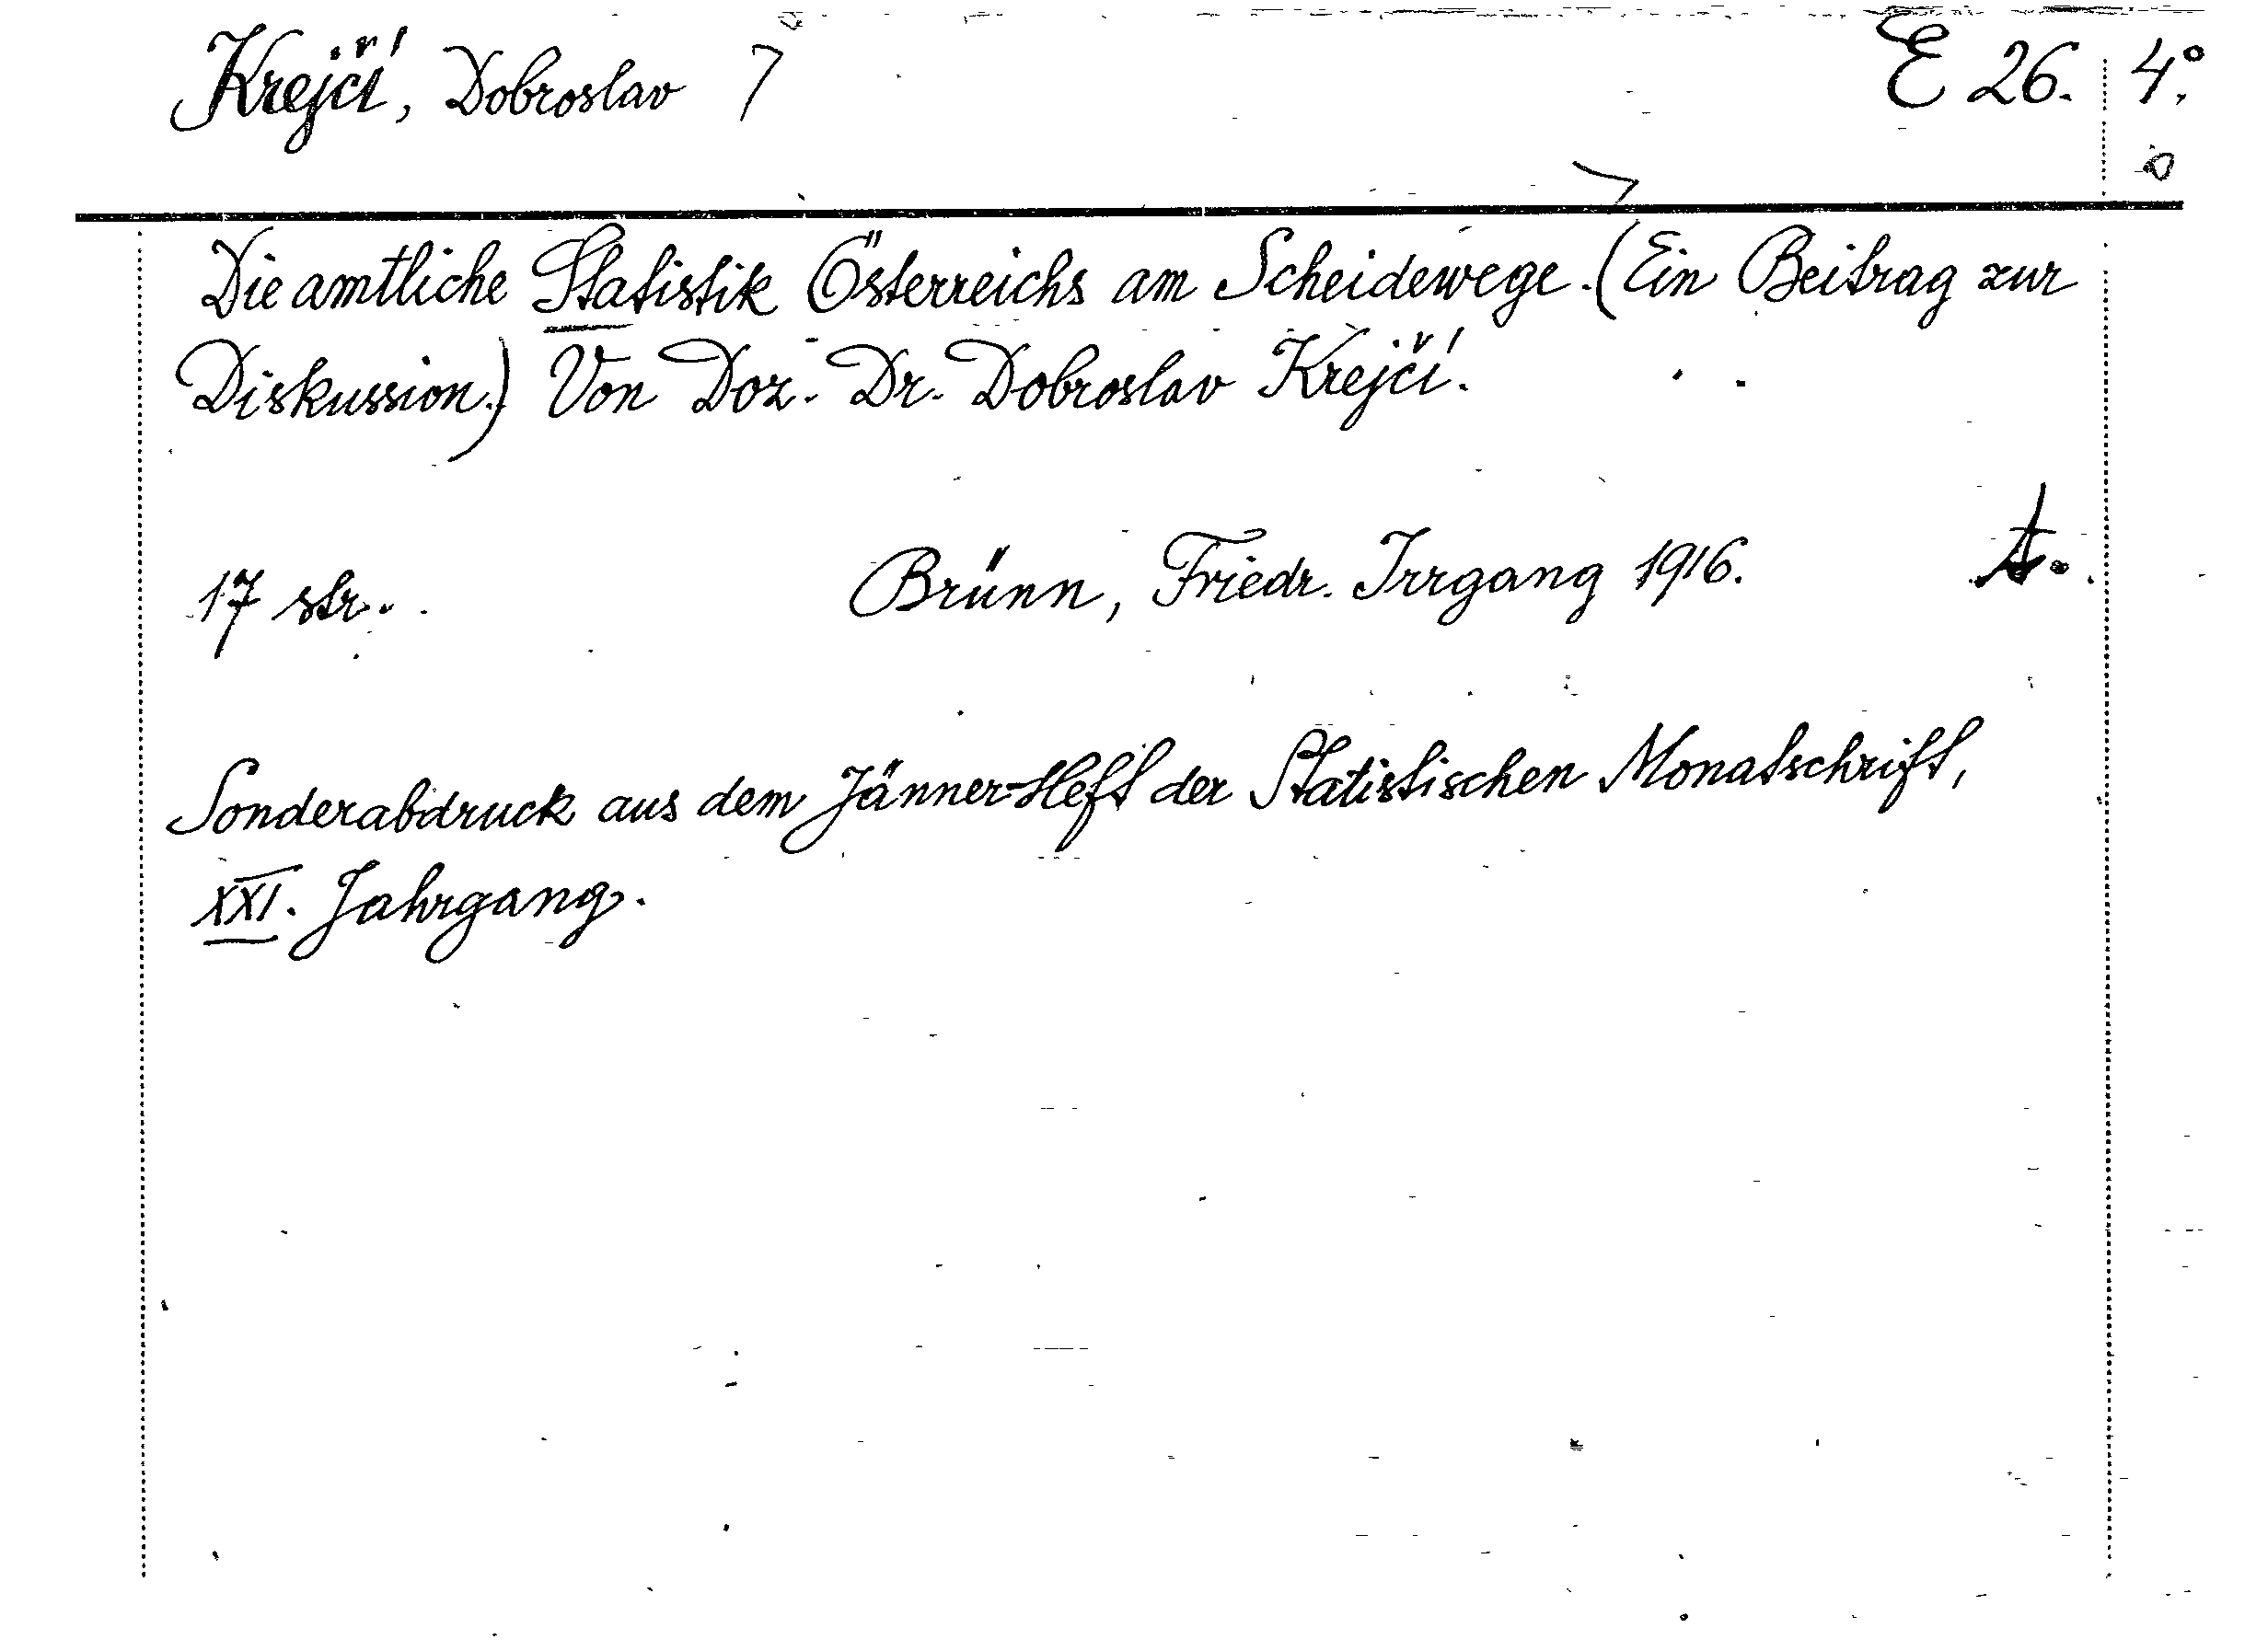 Krejčí, Dobroslav E 26. 4°.
Die amtliche Statistik Österreichs am Scheidewege. (Ein Beitrag zur
Diskussion.) Von Doz. Dr. Dobroslav Krejčí.
17 str. Brünn, Friedr. Irrgang 1916.
Sonderabdruck aus dem Jänner-Heft der Statistischen Monatschrift,
XXI. Jahrgang.